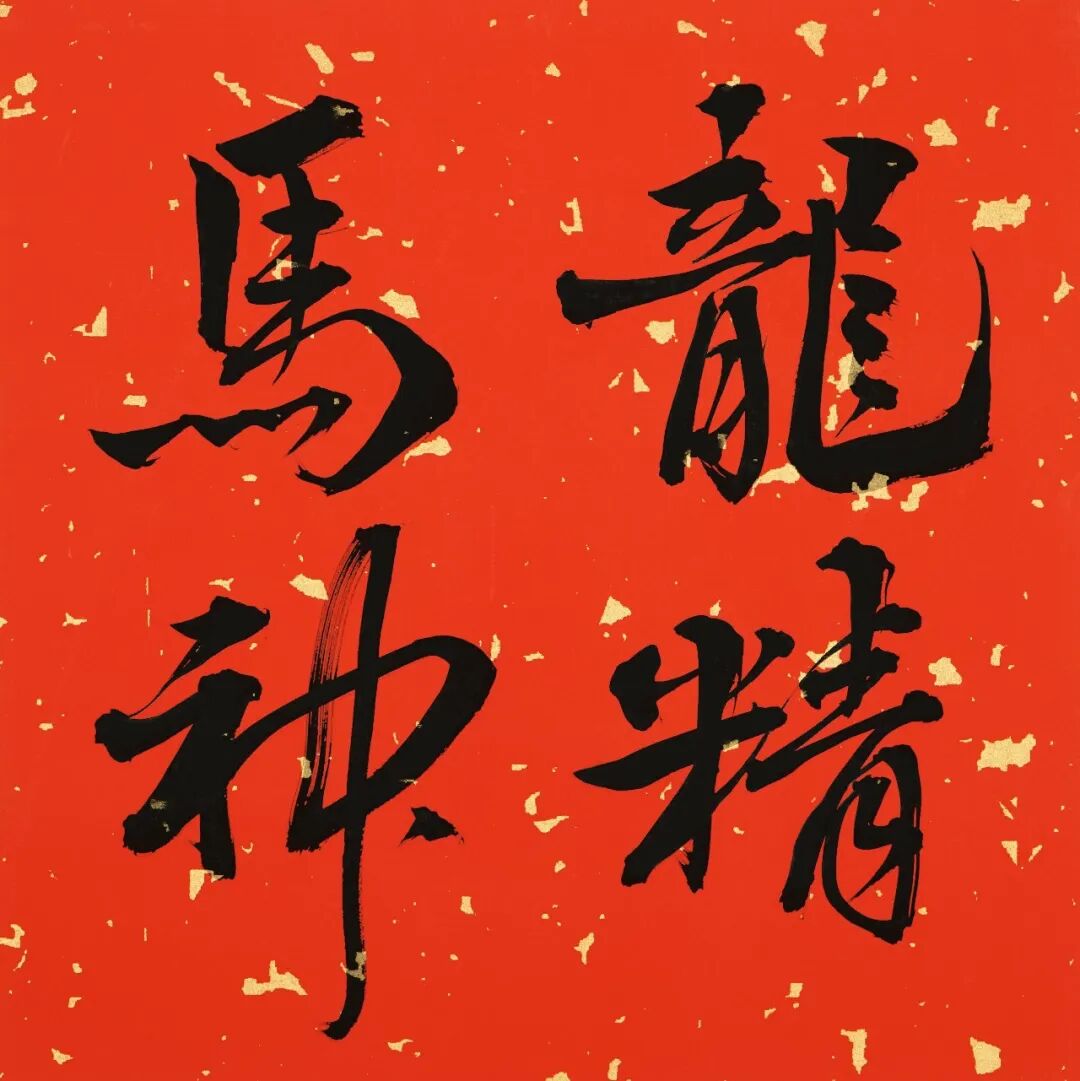 龍精
馬神